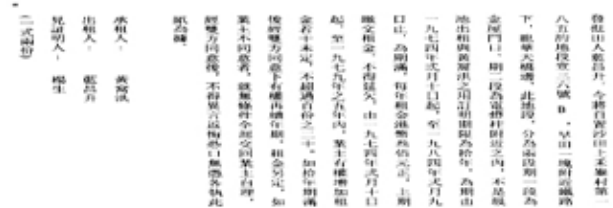 發租出人藍昌升，今將自置沙田上禾輋村第一
八五約地段壹三六號B，早田一塊附近鐵路
下，龍華天橋邊，此地段，分為兩段期一段為
金屋門口，期二段為電燈杆附近之內，不是親
地出租與黃富洪之用訂明期限為拾年，為期由
一九七四年弍月十日起，至一九八四年弍月九
日止，為期滿，每年租金港幣叁佰元正，上期
繳交租金，不得延欠，由一九七四年弍月十日
起，至一九七九年之五年內，業主有權增加租
金若干未定，不超過百份之二十，如拾年期滿
後經雙方同意下有權再續年期，租金另定，如
業主不同意者，就無條件全部交回業主自理，
經雙方同意後，不得異言反悔恐口無憑各執此
紙為據。
承租人：黃富洪
出租人：藍昌升
見証明人：楊生
（一式兩份）